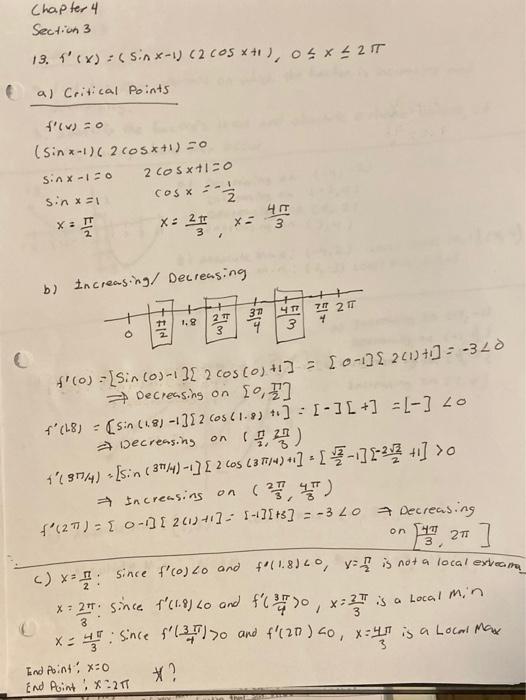 Chapter 4
Section 3
13. f'(x) = (sin x-1) (2 cos x+1), 0 ≤ x ≤ 2π
a) Critical Points
f'(x) = 0
(sin x-1)(2 cos x+1) = 0
sin x-1=0 2 cos x+1=0
sin x = 1 cos x = -1/2
x = π/2 x = 2π/3 , x = 4π/3
b) Increasing/Decreasing
0 π/2 1.8 2π/3 3π/4 4π/3 7π/4 2π
f'(0) = [sin(0)-1][2 cos(0)+1] = [0-1][2(1)+1] = -3<0
⇒ Decreasing on [0, π/2]
f'(1.8) = [sin(1.8)-1][2 cos(1.8)+1] = [-][+] = [-] <0
⇒ Decreasing on (π/2, 2π/3)
f'(3π/4) = [sin(3π/4)-1][2 cos(3π/4)+1] = [√2/2 -1][-2√2/2 +1] >0
⇒ Increasing on (2π/3, 4π/3)
f'(2π) = [0-1][2(1)+1] = [-1][+3] = -3<0 ⇒ Decreasing
on [4π/3, 2π]
c) x = π/2: since f'(0)<0 and f'(1.8)<0, x = π/2 is not a local extrema
x = 2π/3: since f'(1.8)<0 and f'(3π/4)>0, x = 2π/3 is a Local Min
x = 4π/3: since f'(3π/4)>0 and f'(2π)<0, x = 4π/3 is a Local Max
End Point: x=0
End Point: x=2π *?